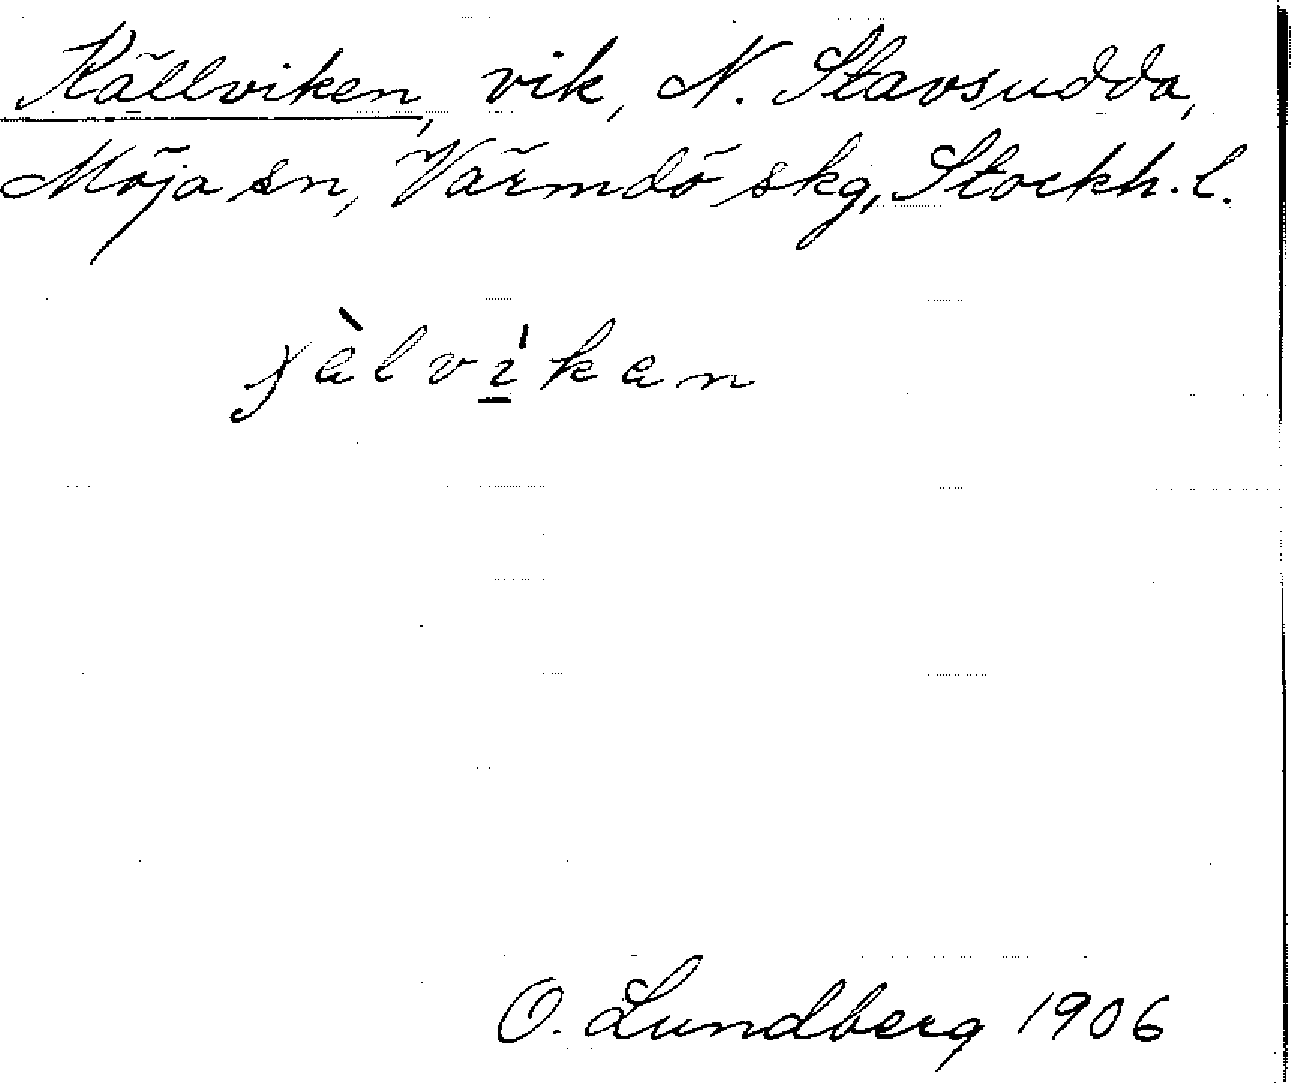 Källviken, vik, N. Stavsudda,
Möja sn, Värmdö skg, Stockh. l.
O. Lundberg 1906